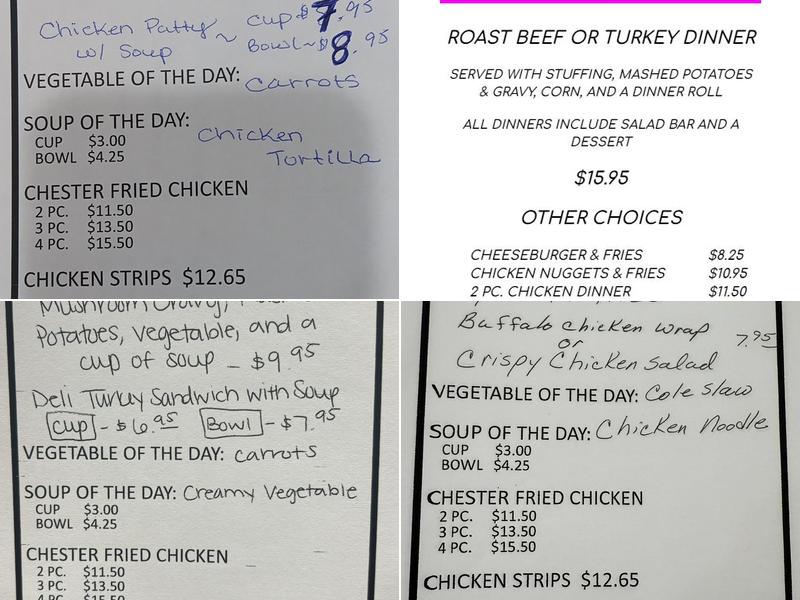 Chicken Patty ~ Cup ~ $7.95
w/ Soup Bowl ~ $8.95
VEGETABLE OF THE DAY: Carrots
SOUP OF THE DAY: Chicken
Tortilla
CUP $3.00
BOWL $4.25
CHESTER FRIED CHICKEN
2 PC. $11.50
3 PC. $13.50
4 PC. $15.50
CHICKEN STRIPS $12.65
ROAST BEEF OR TURKEY DINNER
SERVED WITH STUFFING, MASHED POTATOES
& GRAVY, CORN, AND A DINNER ROLL
ALL DINNERS INCLUDE SALAD BAR AND A
DESSERT
$15.95
OTHER CHOICES
CHEESEBURGER & FRIES $8.25
CHICKEN NUGGETS & FRIES $10.95
2 PC. CHICKEN DINNER $11.50
Mushroom Gravy,
Potatoes, vegetable, and a
cup of soup - $9.95
Deli Turkey Sandwich with Soup
Cup - $6.95 Bowl - $7.95
VEGETABLE OF THE DAY: carrots
SOUP OF THE DAY: Creamy Vegetable
CUP $3.00
BOWL $4.25
CHESTER FRIED CHICKEN
2 PC. $11.50
3 PC. $13.50
4 PC. $15.50
Buffalo chicken wrap
or 7.95
Crispy Chicken Salad
VEGETABLE OF THE DAY: Cole Slaw
SOUP OF THE DAY: Chicken Noodle
CUP $3.00
BOWL $4.25
CHESTER FRIED CHICKEN
2 PC. $11.50
3 PC. $13.50
4 PC. $15.50
CHICKEN STRIPS $12.65